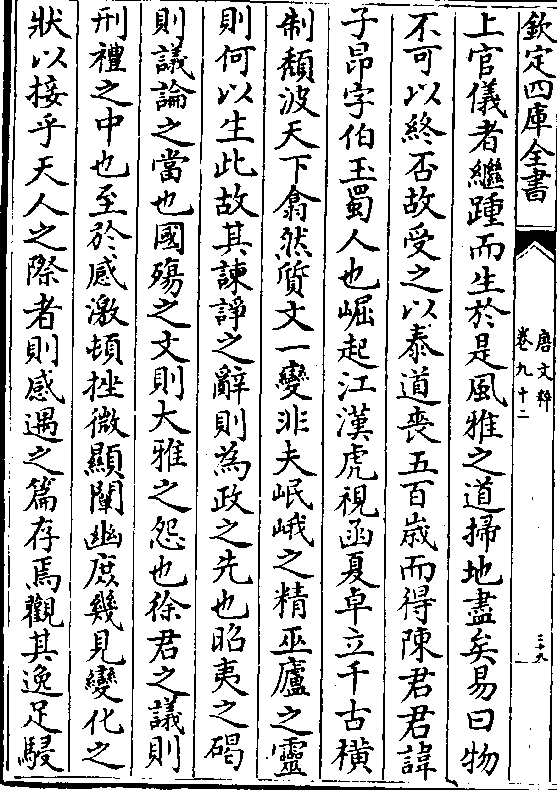 欽定四庫全書
唐文粹
卷九十二
三十九
上官儀者繼踵而生於是風雅之道掃地盡矣易曰物
不可以終否故受之以泰道喪五百歳而得陳君君諱
子昂字伯玉蜀人也崛起江漢虎視函夏卓立千古横
制頽波天下翕然質文一變非夫岷峨之精巫廬之靈
則何以生此故其諫諍之辭則為政之先也昭夷之碣
則議論之當也國殤之文則大雅之怨也徐君之議則
刑禮之中也至於感激頓挫微顯闡幽庶幾見變化之
狀以接乎天人之際者則感遇之篇存焉觀其逸足駸